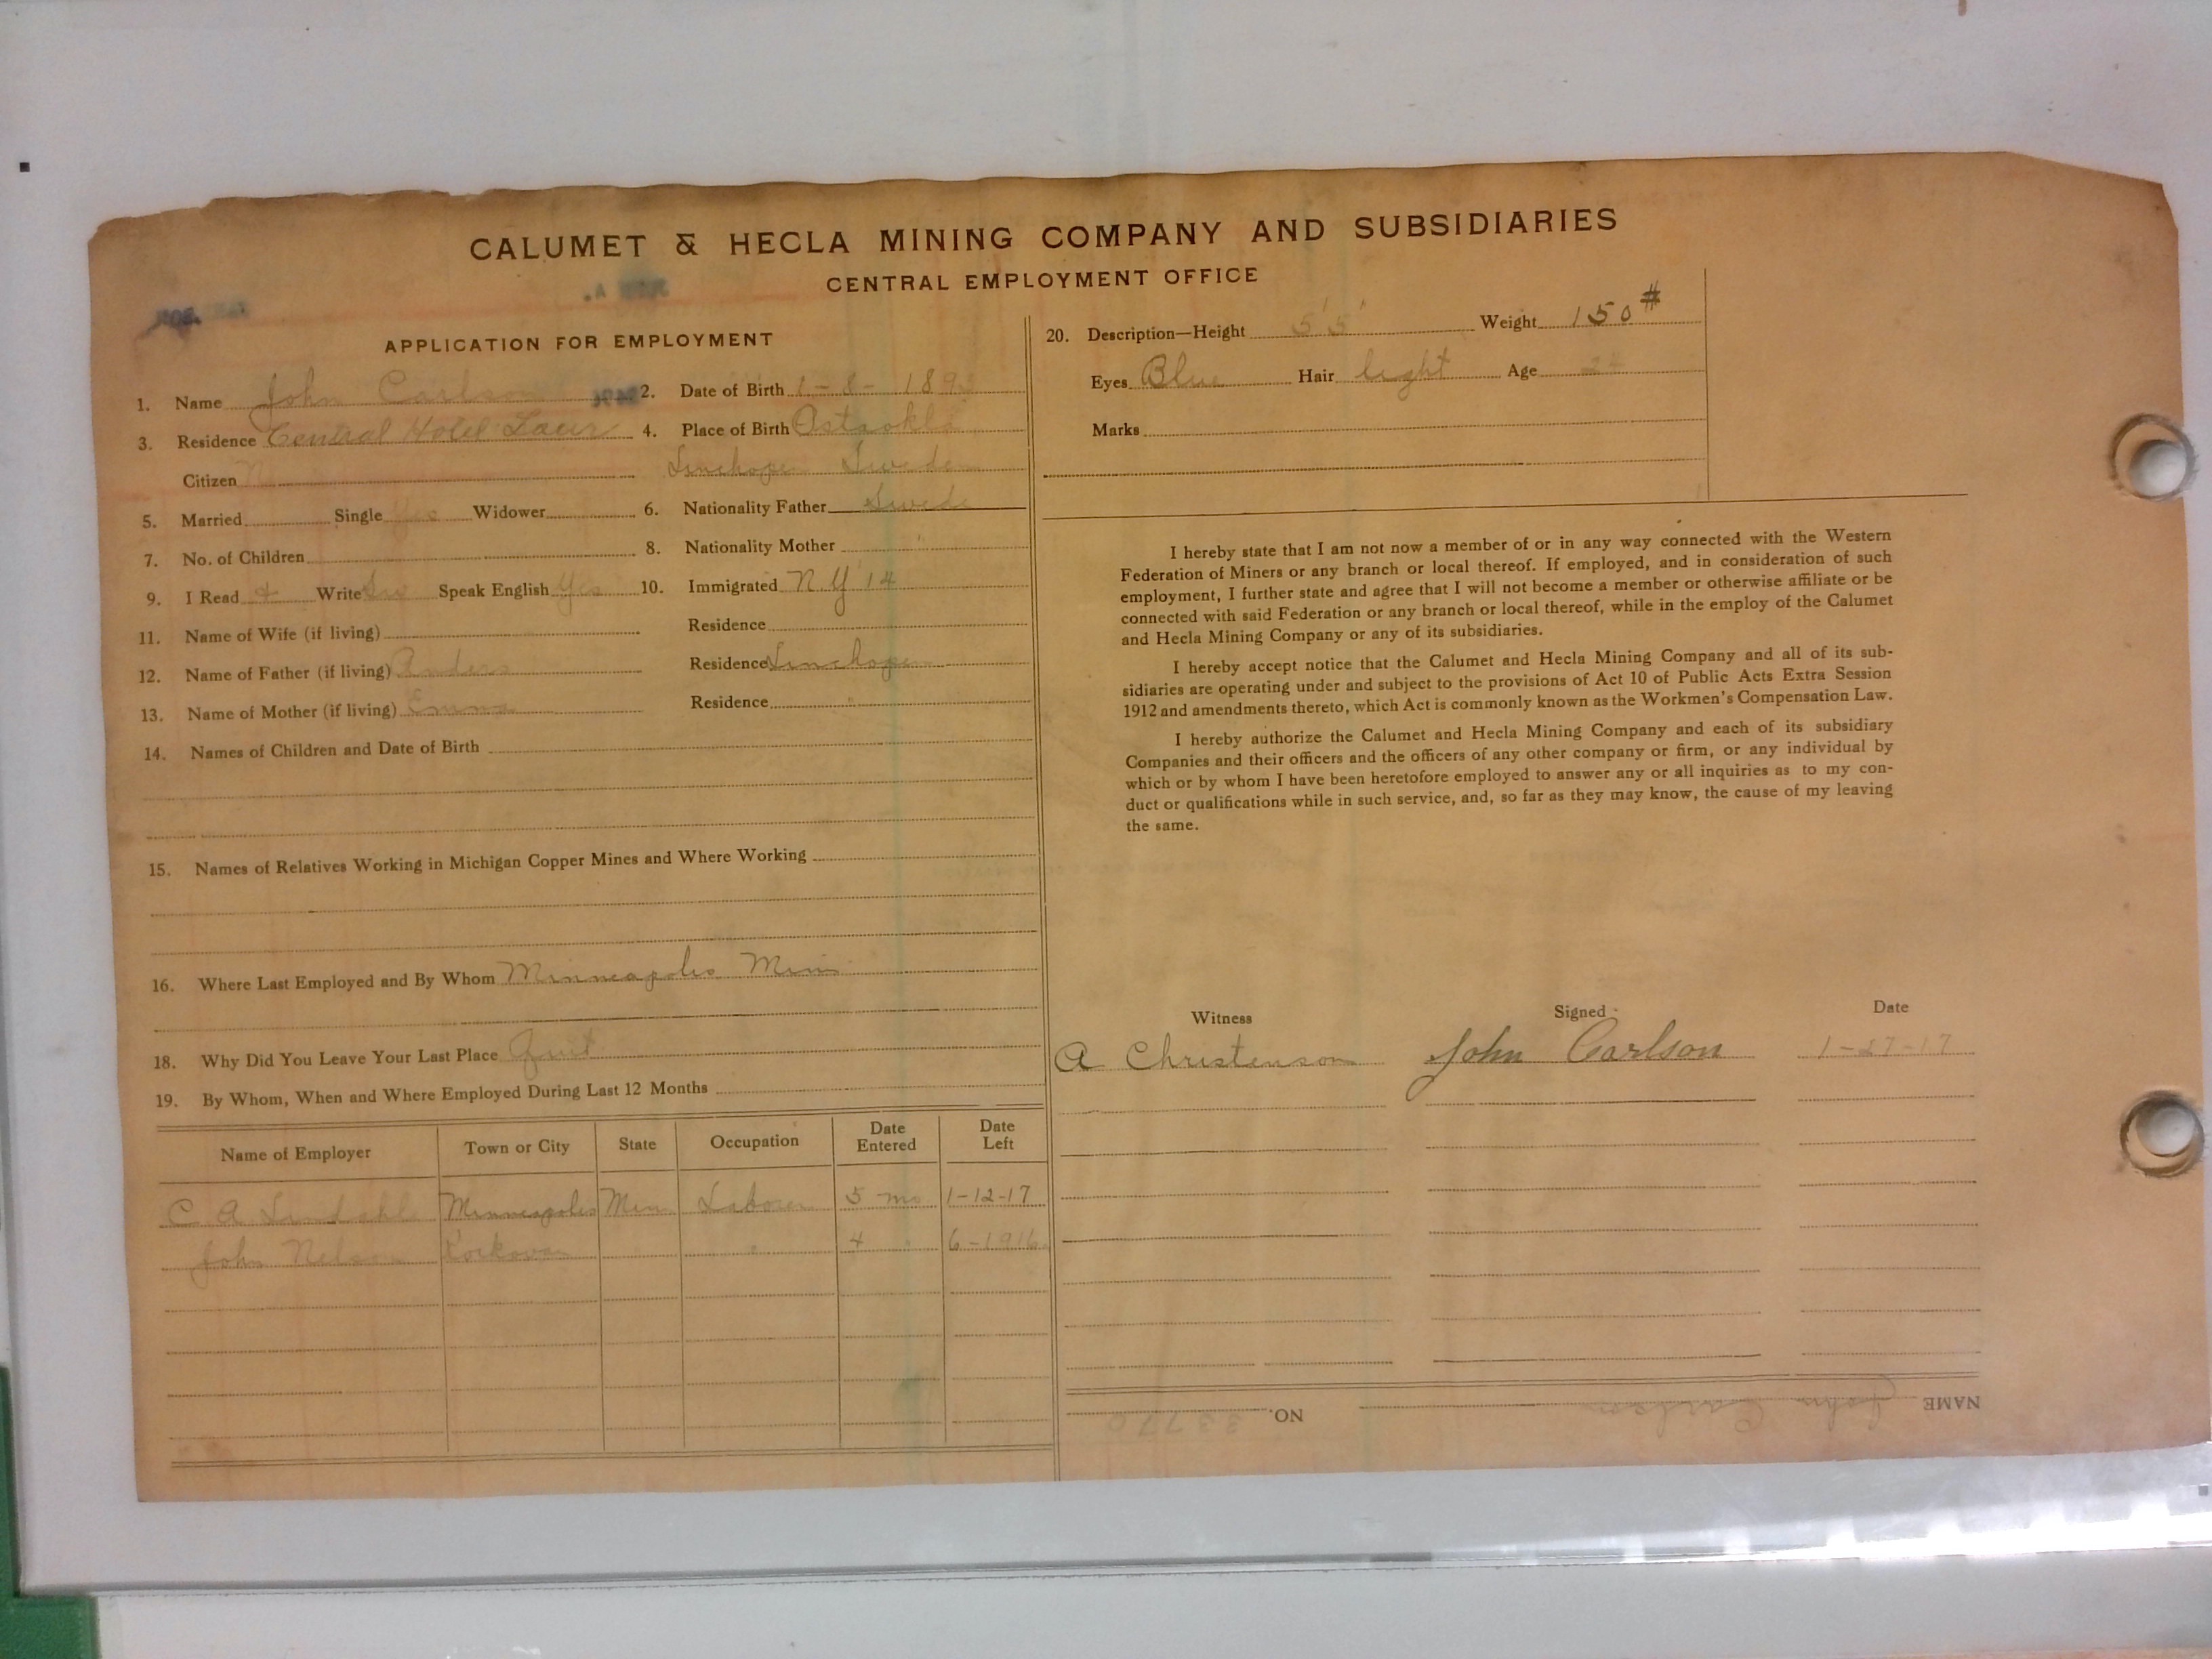 CALUMET & HECLA MINING COMPANY AND SUBSIDIARIES
CENTRAL EMPLOYMENT OFFICE
APPLICATION FOR EMPLOYMENT
1. Name John Carlson
2. Date of Birth 1-8-189
3. Residence Central Hotel Laur
4. Place of Birth
Citizen N
Sweden
5. Married Single Yes Widower
6. Nationality Father Swede
7. No. of Children
8. Nationality Mother "
9. I Read & Write Sw Speak English Yes
10. Immigrated N.Y 14
11. Name of Wife (if living)
Residence
12. Name of Father (if living) Anders
Residence Linchope
13. Name of Mother (if living) Emma
Residence "
14. Names of Children and Date of Birth
15. Names of Relatives Working in Michigan Copper Mines and Where Working
16. Where Last Employed and By Whom Minneapolis Minn
18. Why Did You Leave Your Last Place Quit
19. By Whom, When and Where Employed During Last 12 Months
Name of Employer Town or City State Occupation Date Entered Date Left
C A Lindahl Minneapolis Min Laborer 5 mo 1-12-17
John Nelson " 4 " 6-1916
20. Description—Height 5'5' Weight 150#
Eyes Blue Hair light Age 24
Marks
I hereby state that I am not now a member of or in any way connected with the Western
Federation of Miners or any branch or local thereof. If employed, and in consideration of such
employment, I further state and agree that I will not become a member or otherwise affiliate or be
connected with said Federation or any branch or local thereof, while in the employ of the Calumet
and Hecla Mining Company or any of its subsidiaries.
I hereby accept notice that the Calumet and Hecla Mining Company and all of its sub-
sidiaries are operating under and subject to the provisions of Act 10 of Public Acts Extra Session
1912 and amendments thereto, which Act is commonly known as the Workmen's Compensation Law.
I hereby authorize the Calumet and Hecla Mining Company and each of its subsidiary
Companies and their officers and the officers of any other company or firm, or any individual by
which or by whom I have been heretofore employed to answer any or all inquiries as to my con-
duct or qualifications while in such service, and, so far as they may know, the cause of my leaving
the same.
Witness Signed Date
A Christenson John Carlson 1-27-17
NAME John Carlson NO. 33770